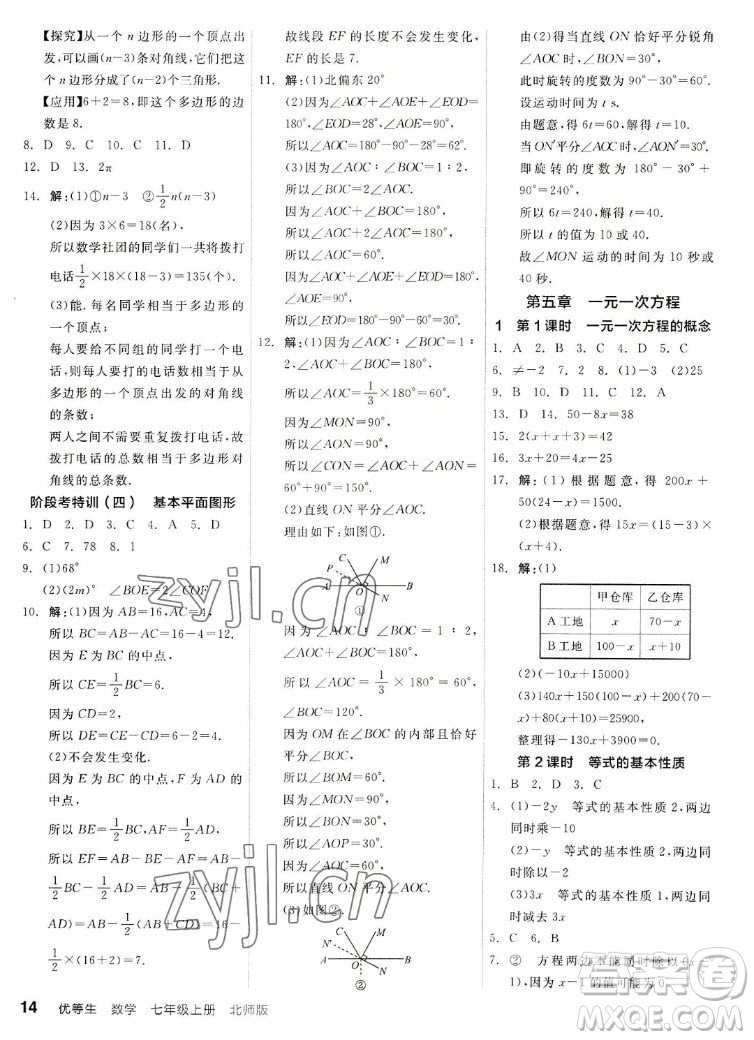 【探究】从一个 n 边形的一个顶点出
发，可以画(n−3)条对角线，将这
个 n 边形分成了(n−2)个三角形.
【应用】6+2=8，即这个多边形的边
数是 8.
8. D 9. C 10. C 11. C
12. D 13. 2π
14. 解：(1)①n−3 ②1/2n(n−3)
(2)因为 3×6=18(名)，
所以数学社团的同学们一共将拨打
电话1/2×18×(18−3)=135(个).
(3)能. 每名同学相当于多边形的
一个顶点；
每人要给不同组的同学打一个电
话，则每人要打的电话个数相当于
多边形的一个顶点出发的对角线
的条数；
两人之间不需要重复拨打电话，故
拨打电话的总数相当于多边形的对
角线的总条数.
阶段考特训（四） 基本平面图形
1. D 2. D 3. C 4. A 5. D
6. C 7. 78 8. 1
9. (1)68°
(2)(2m)° ∠BOE=2∠COF
10. 解：(1)因为 AB=16，AC=4，
所以 BC=AB−AC=16−4=12.
因为 E 为 BC 的中点，
所以 CE=1/2BC=6.
因为 CD=2，
所以 DE=CE−CD=6−2=4.
(2)不会发生变化.
因为 E 为 BC 的中点，F 为 AD 的
中点，
所以 BE=1/2BC，AF=1/2AD，
所以 EF=AB−BE−AF=AB−
1/2BC−1/2AD=AB−1/2(BC+
AD)=AB−1/2(AB−CD)=16−
1/2×(16−2)=7.
故线段 EF 的长度不会发生变化，
EF 的长是 7.
11. 解：(1)北偏东 20°
(2)因为∠AOC+∠AOE+∠EOD=
180°，∠EOD=28°，∠AOE=90°，
所以∠AOC=180°−90°−28°=62°.
(3)因为∠AOC∶∠BOC=1∶2，
所以∠BOC=2∠AOC.
因为∠AOC+∠BOC=180°，
所以∠AOC+2∠AOC=180°，
所以∠AOC=60°.
因为∠AOC+∠AOE+∠EOD=
180°，∠AOE=90°，
所以∠EOD=180°−90°−60°=30°.
12. 解：(1)因为∠AOC∶∠BOC=1∶2，
∠AOC+∠BOC=180°，
所以∠AOC=1/3×180°=60°.
因为∠MON=90°，
所以∠CON=∠AOC+∠MON=
60°+90°=150°.
(2)直线 ON 平分∠AOC.
理由如下：如图①.
C M P A O B N
①
因为∠AOC∶∠BOC=1∶2，
∠AOC+∠BOC=180°，
所以∠AOC=1/3×180°=60°，
∠BOC=120°.
因为 OM 在∠BOC 的内部且恰好
平分∠BOC，
所以∠BOM=60°.
因为∠MON=90°，
所以∠BON=30°，
所以∠AOP=30°，
所以直线 ON 平分∠AOC.
(3)如图②.
C M A O B N
②
由(2)可知直线 ON 恰好平分锐角
∠AOC 时，∠BON=30°，
此时旋转的度数为 60°.
设运动时间为 t s.
由题意，得 6t=60，解得 t=10.
当 ON′平分∠AOC 时，∠AON′=30°，
即旋转的度数为 180°−30°+
90°=240°，
所以 6t=240，解得 t=40.
所以 t 的值为 10 或 40.
故∠MON 运动的时间为 10 秒或
40 秒.
第五章 一元一次方程
1 第 1 课时 一元一次方程的概念
1. A 2. B 3. D 4. B 5. C
6. ≠−2 7. 2 8. (1)−3 (2)25
9. B 10. D 11. A 12. C
13. D 14. 50−8x=38
15. 2(x+x+3)=42
16. 3x+20=4x−25
17. 解：(1)根据题意，得 70x+
50(24−x)=1500.
(2)根据题意，得 15x=(15×2)×
(x+4).
18. 解：(1)
甲仓库 乙仓库
A 工地 x 70−x
B 工地 100−x x+10
(2)(−10x+15000)
(3)140x+150(100−x)+200(70−
x)+80(x+10)=25900，
整理得−130x+3900=0.
第 2 课时 等式的基本性质
1. B 2. D 3. C
4. (1)−2y 等式的基本性质 2，两边
同时乘−10
(2)−y 等式的基本性质 2，两边
同时除以−2
(3)3x 等式的基本性质 2，两边
同时除以2/3
5. C 6. B
7. ② 方程两边不能同时除以
因为 x−1 的值可能为 0
14 优等生 数学 七年级上册 北师版
zyjl.cn
zyjl.cn